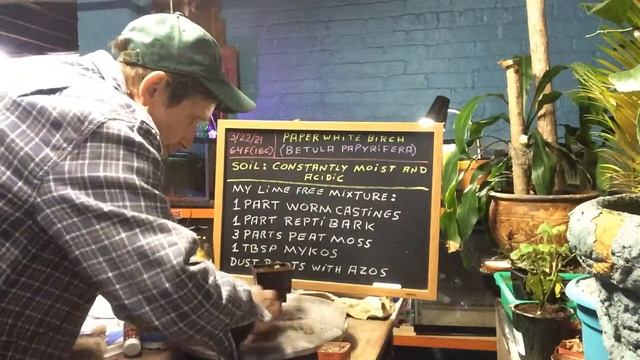 3/22/21 PAPER WHITE BIRCH
64F(18C) (BETULA PAPYRIFERA)
SOIL: CONSTANTLY MOIST AND
ACIDIC
MY LIME FREE MIXTURE:
1 PART WORM CASTINGS
1 PART REPTI BARK
3 PARTS PEAT MOSS
1 TBSP MYKOS
DUST ROOTS WITH AZOS